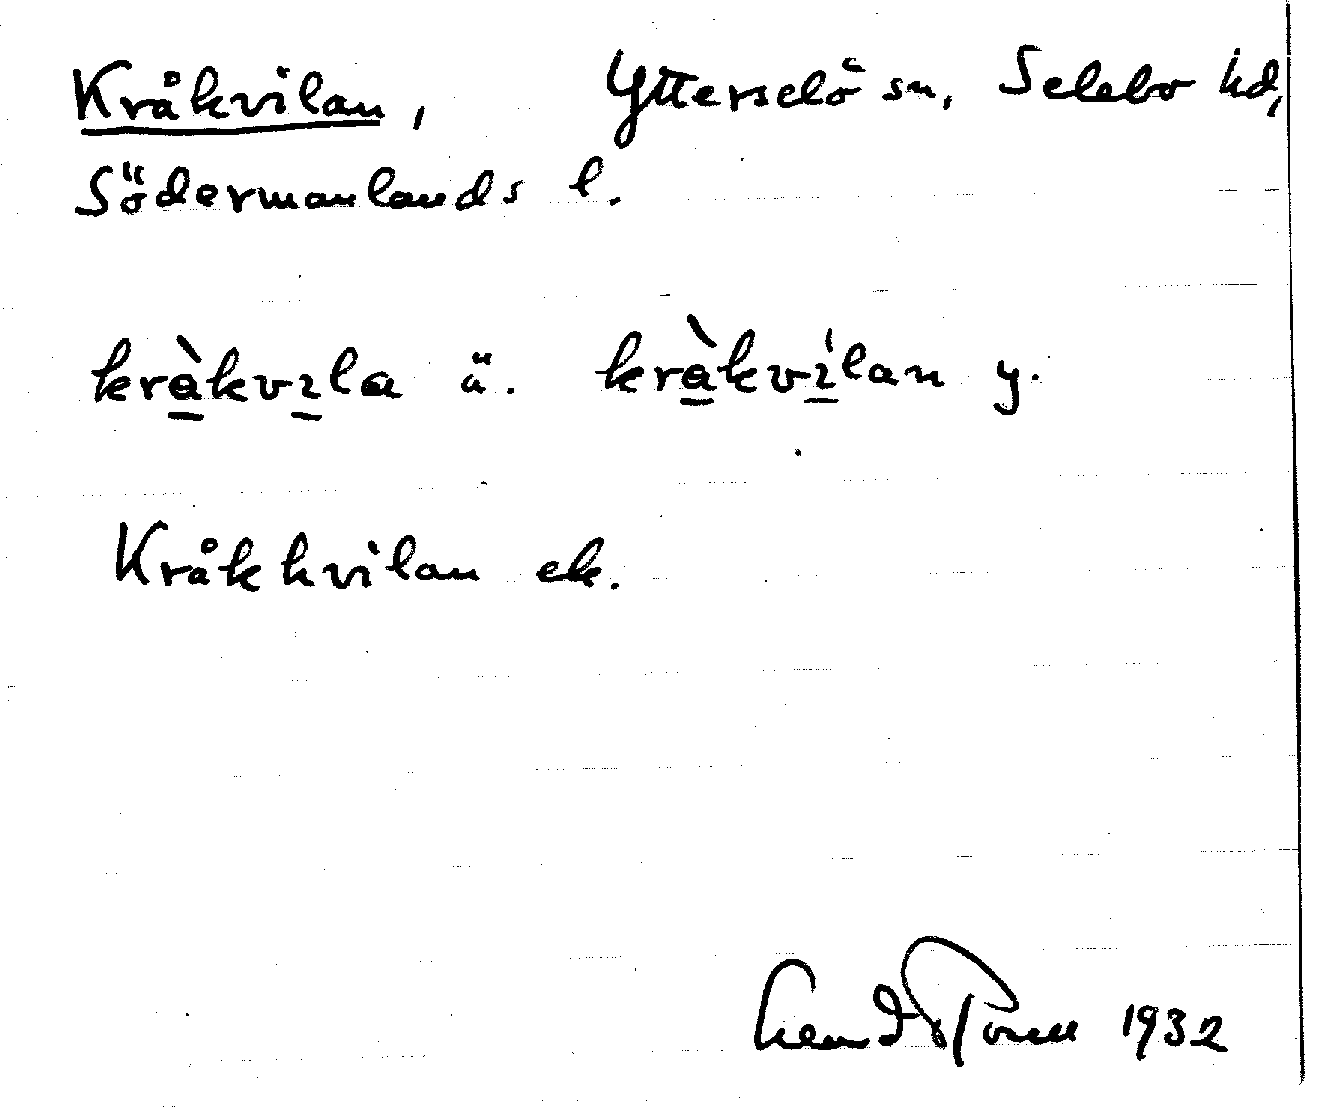 Kråkvilan, Ytterselö sn, Selebo hd,
Södermanlands l.
kràkvıla ä. kràkvı́lan y.
Kråkhvilan ek.
1932